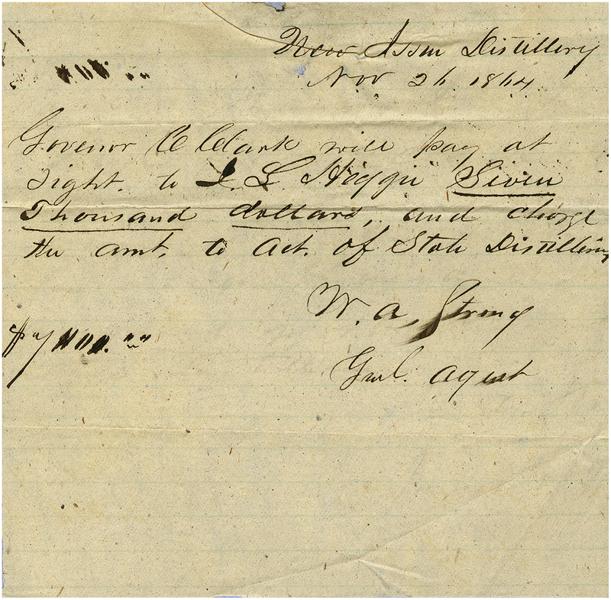 Near Issm Distillery
Nov 26. 1864.
Govenor C Clark will pay at
Sight. to J. L. Higgin Seven
Thousand dollars, and charge
the amt. to act. of State Distillery
W. A. Strong
Genl. Agent
$7000. ""